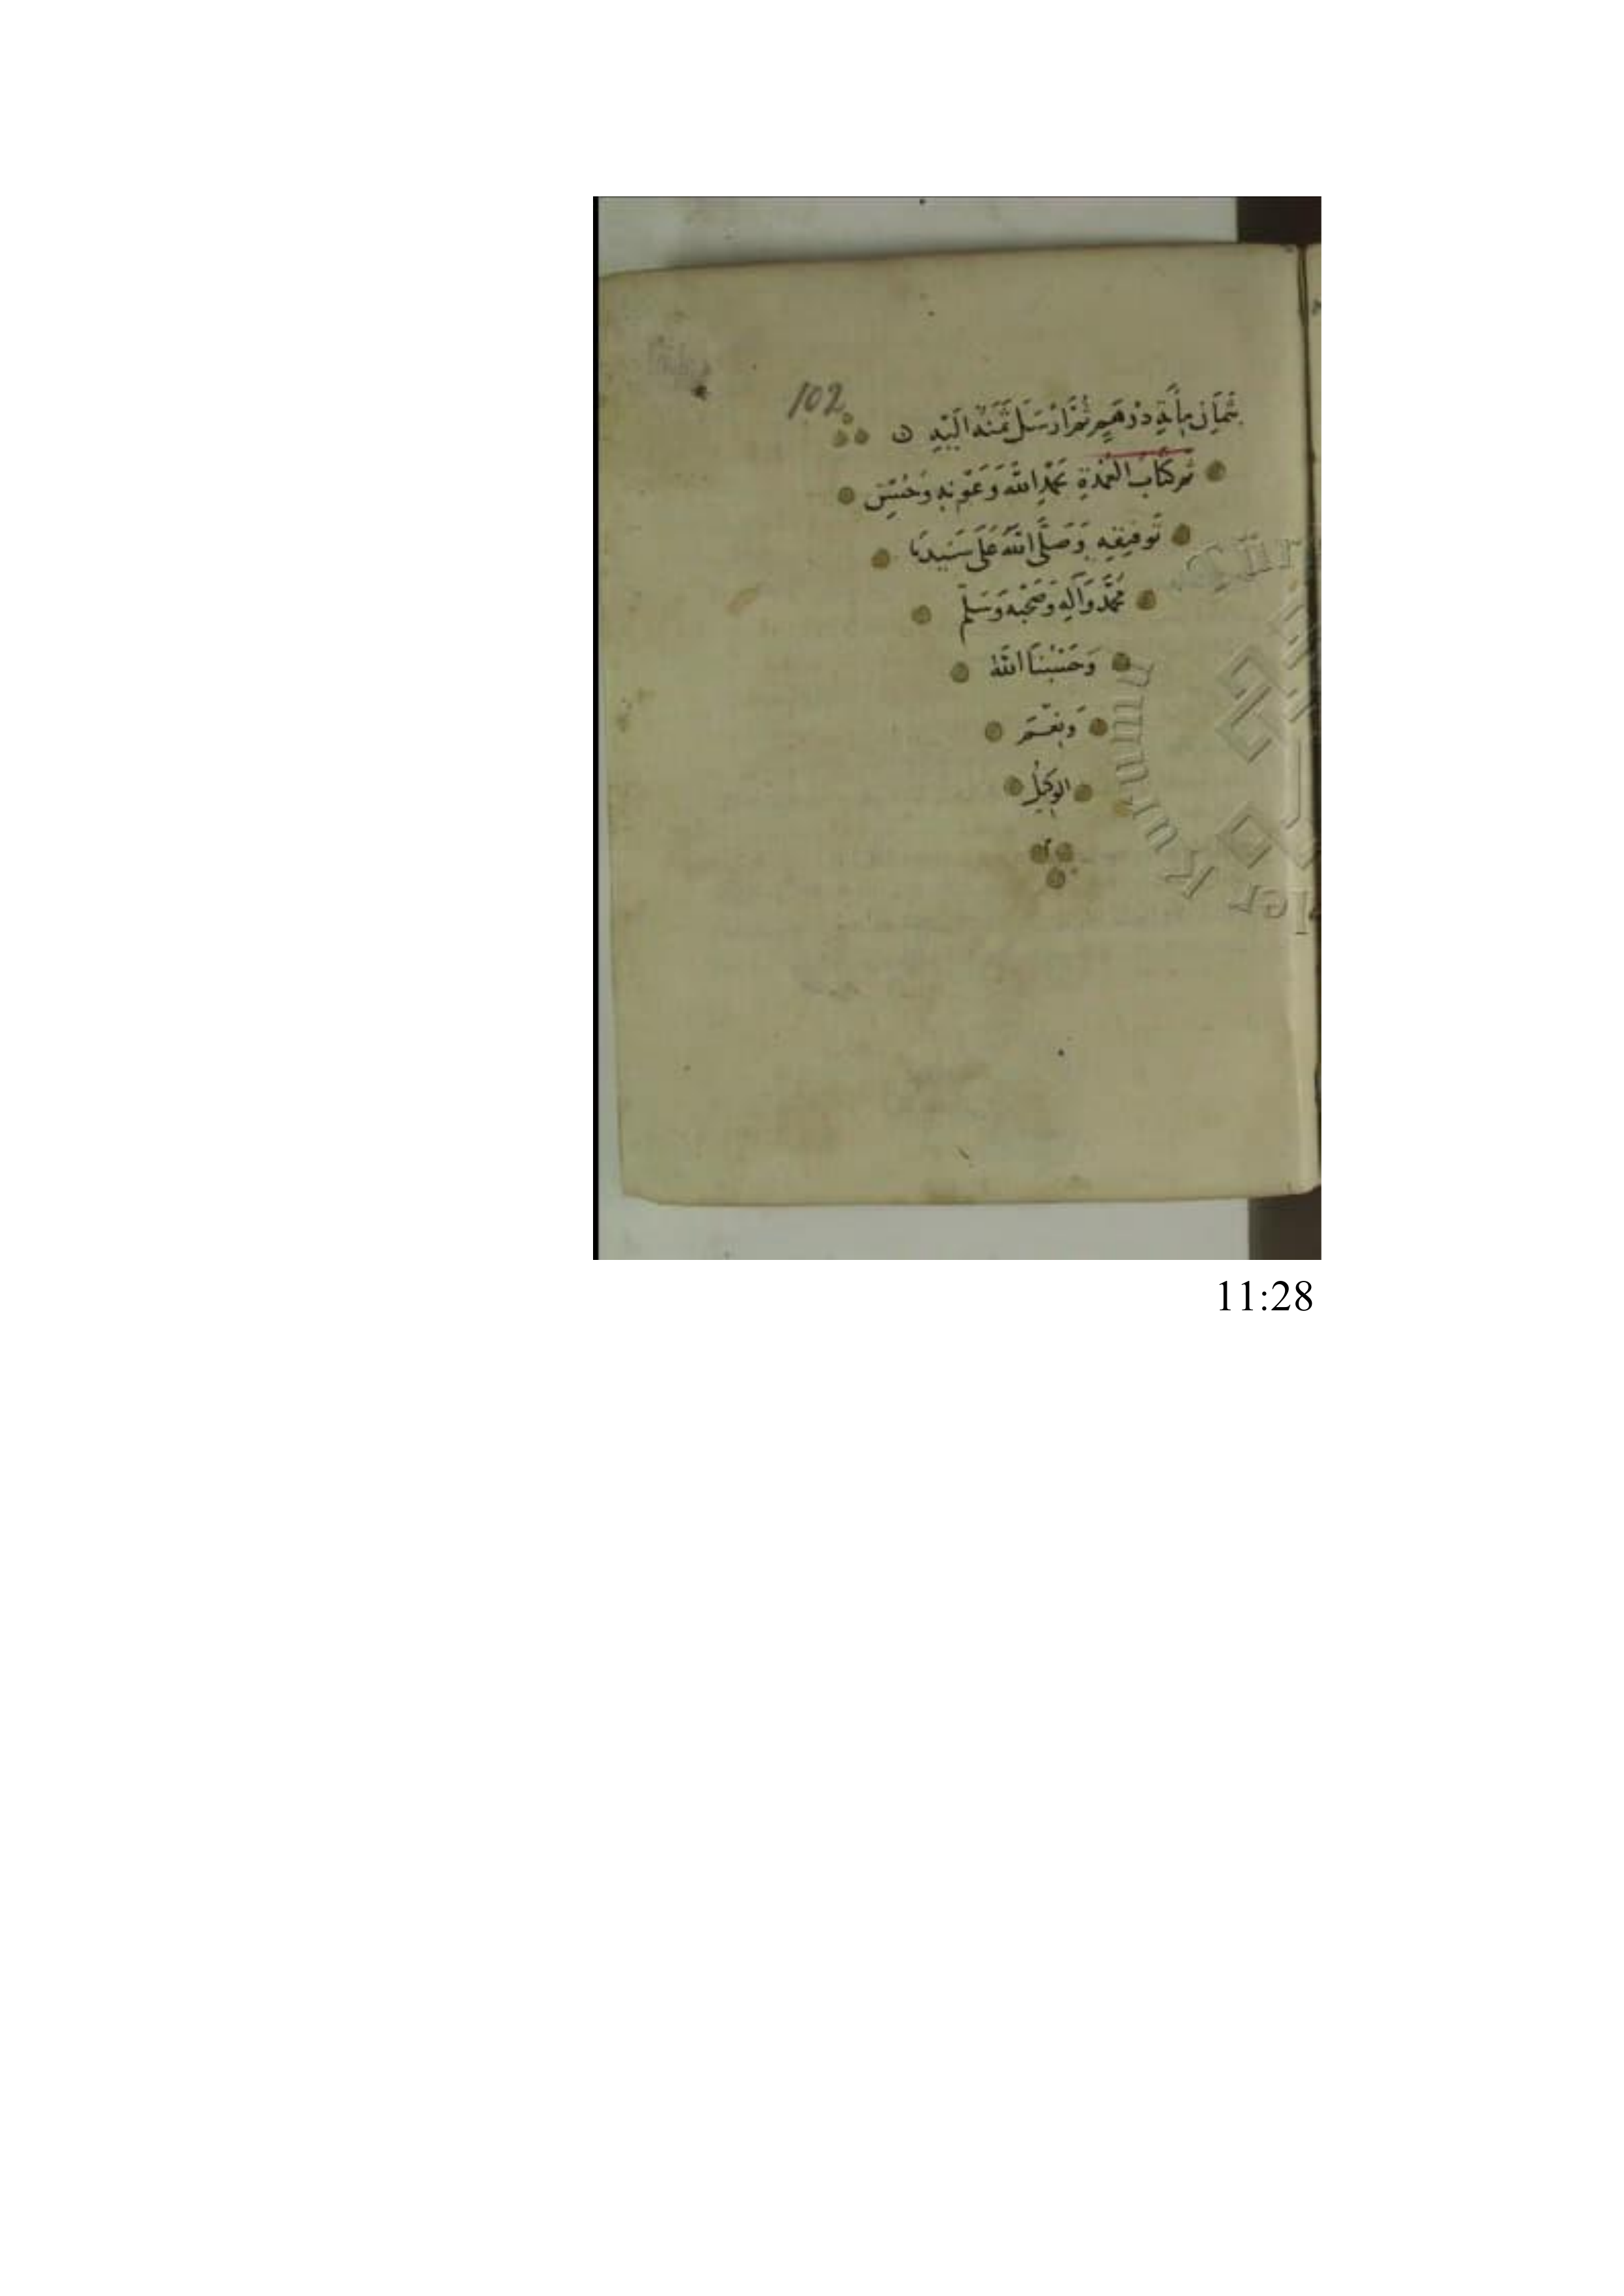 102
بِثَمَانِ مِأَيَةِ دِرْهَمٍ ثُمَّ أَرْسَلَ ثَمَنَهُ اِلَيْهِ
تم كتَابُ العُمْدَةِ بحَمْدِ اللهِ وَعَوْنِهِ وَحُسْنِ
تَوفيقِهِ وَصَلَّى اللهُ عَلَى سَيِّدِنَا
مُحَمَّدٍ وَآلِهِ وَصَحْبِهِ وَسَلَّم
وَحَسْبُنَا اللهُ
وَنِعْمَ
الوَكِيلُ
11:28